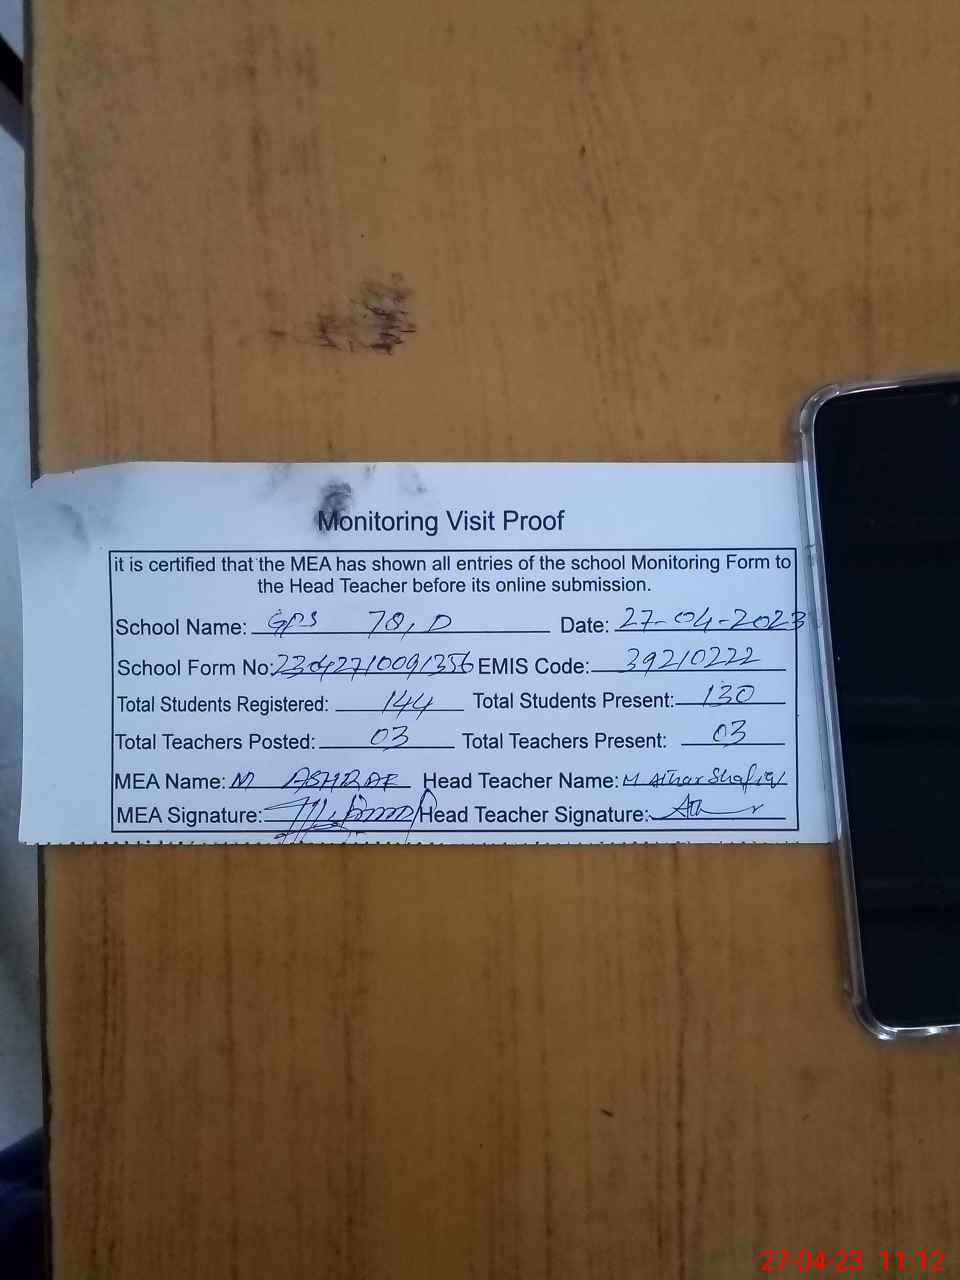 Monitoring Visit Proof
it is certified that the MEA has shown all entries of the school Monitoring Form to
the Head Teacher before its online submission.
School Name: GPS 78, D Date: 27-04-2023
School Form No: 23042710091356 EMIS Code: 39210222
Total Students Registered: 144 Total Students Present: 130
Total Teachers Posted: 03 Total Teachers Present: 03
MEA Name: M ASHRAF Head Teacher Name: M Athar Shafiq
MEA Signature: Head Teacher Signature:
27-04-23 11:12